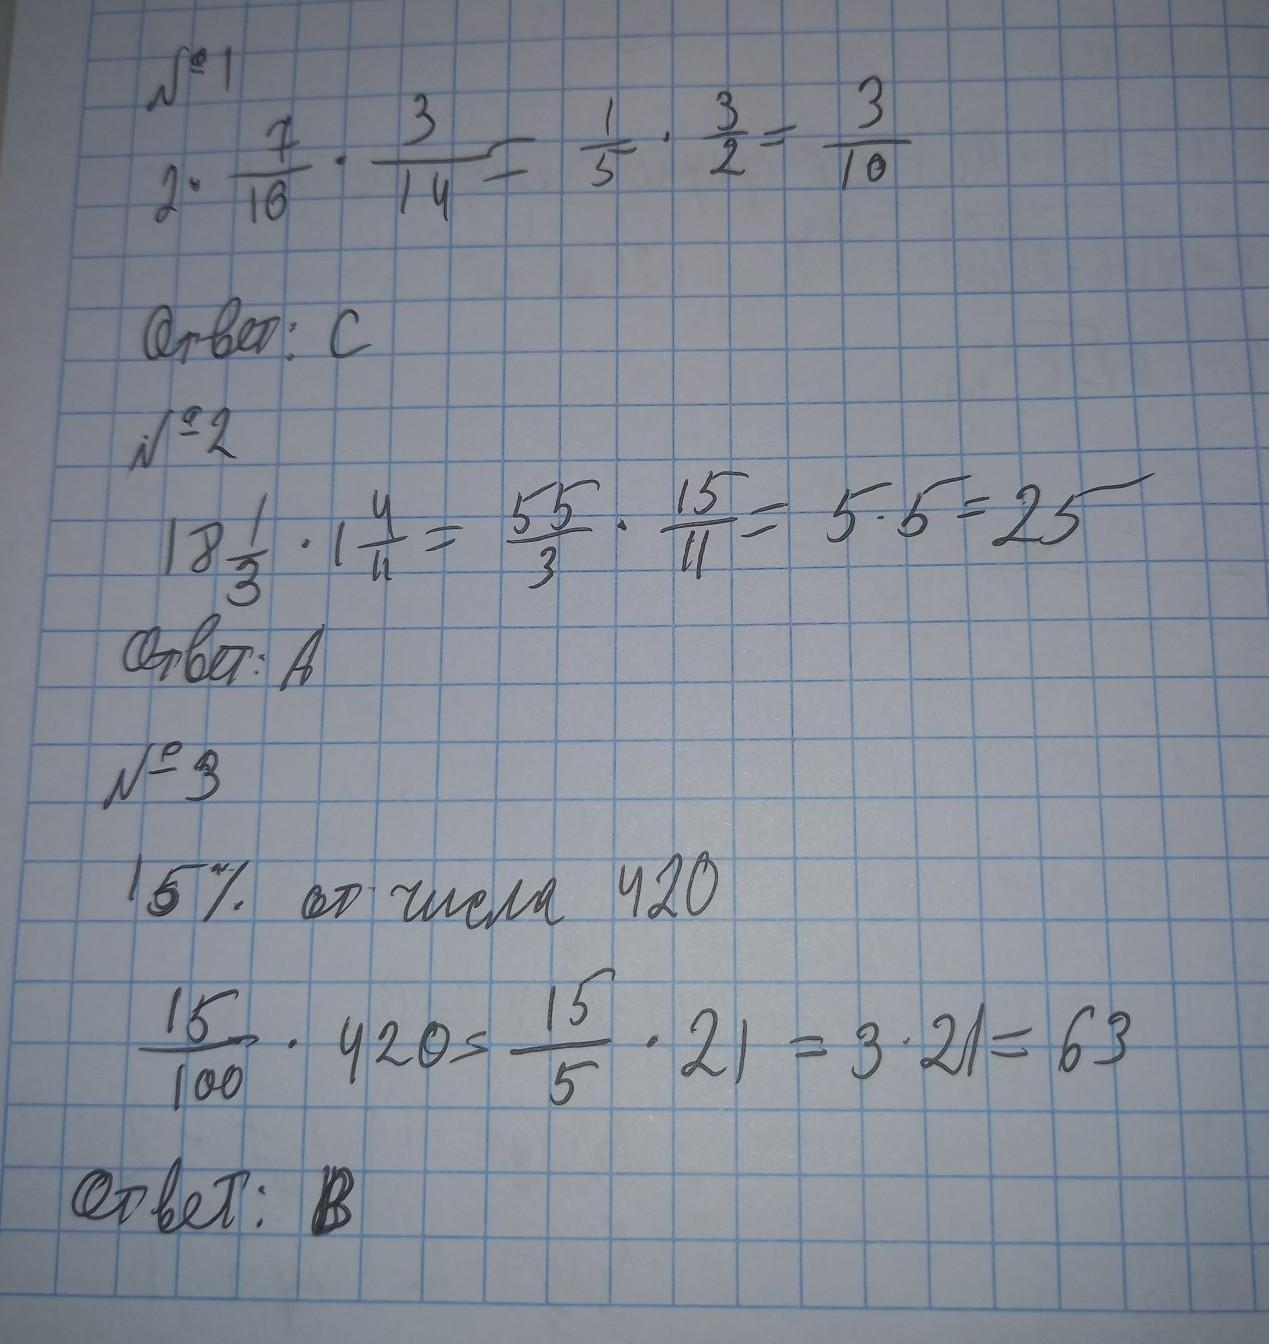 №1
2 · 7/10 · 3/14 = 1/5 · 3/2 = 3/10
Ответ: C
№2
18 1/3 · 1 4/11 = 55/3 · 15/11 = 5 · 5 = 25
Ответ: A
№3
15% от числа 420
15/100 · 420 = 15/5 · 21 = 3 · 21 = 63
Ответ: B